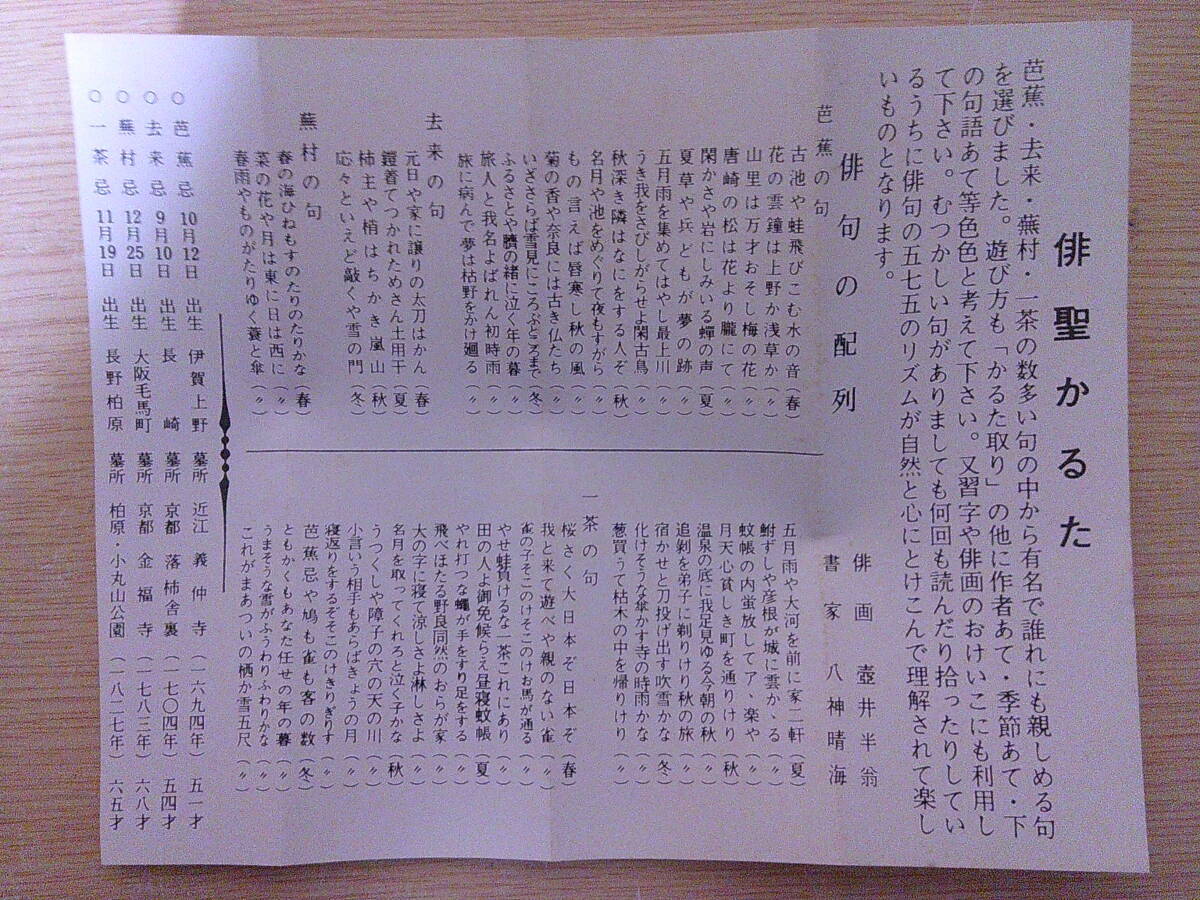 俳聖かるた
芭蕉・去来・蕪村・一茶の数多い句の中から有名で誰れにも親しめる句
を選びました。遊び方も「かるた取り」の他に作者あて・季節あて・下
の句語あて等色色と考えて下さい。又習字や俳画のおけいこにも利用し
て下さい。むつかしい句がありましても何回も読んだり拾ったりしてい
るうちに俳句の五七五のリズムが自然と心にとけこんで理解されて楽し
いものとなります。
俳画 壺井半翁
書家 八神晴海
俳句の配列
芭蕉の句
古池や蛙飛びこむ水の音(春)
花の雲鐘は上野か浅草か(〃)
山里は万才おそし梅の花(〃)
唐崎の松は花より朧にて(〃)
閑かさや岩にしみいる蟬の声(夏)
夏草や兵どもが夢の跡(〃)
五月雨を集めてはやし最上川(〃)
うき我をさびしがらせよ閑古鳥(〃)
秋深き隣はなにをする人ぞ(秋)
名月や池をめぐりて夜もすがら(〃)
もの言えば唇寒し秋の風(〃)
菊の香や奈良には古き仏たち(〃)
いざさらば雪見にころぶところまで(冬)
ふるさとや臍の緒に泣く年の暮(〃)
旅人と我名よばれん初時雨(〃)
旅に病んで夢は枯野をかけ廻る(〃)
去来の句
元日や家に譲りの太刀はかん(春)
鎧着てつかれためさん土用干(夏)
柿主や梢はちかき嵐山(秋)
応々といえど敲くや雪の門(冬)
蕪村の句
春の海ひねもすのたりのたりかな(春)
菜の花や月は東に日は西に(〃)
春雨やものがたりゆく蓑と傘(〃)
五月雨や大河を前に家二軒(夏)
鮒ずしや彦根が城に雲かゝる(〃)
蚊帳の内蛍放してアヽ楽や(〃)
月天心貧しき町を通りけり(秋)
温泉の底に我足見ゆる今朝の秋(〃)
追剝を弟子に剃りけり秋の旅(〃)
宿かせと刀投げ出す吹雪かな(冬)
化けそうな傘かす寺の時雨かな(〃)
葱買うて枯木の中を帰りけり(〃)
一茶の句
桜さく大日本ぞ日本ぞ(春)
我と来て遊べや親のない雀(〃)
雀の子そこのけそこのけお馬が通る(〃)
やせ蛙負けるな一茶これにあり(〃)
田の人よ御免候らえ昼寝蚊帳(夏)
やれ打つな蠅が手をすり足をする(〃)
飛べほたる野良同然のおらが家(〃)
大の字に寝て涼しさよ淋しさよ(〃)
名月を取ってくれろと泣く子かな(秋)
うつくしや障子の穴の天の川(〃)
小言いう相手もあらばきょうの月(〃)
寝返りをするぞそこのけきりぎりす(〃)
芭蕉忌や鳩も雀も客の数(冬)
ともかくもあなた任せの年の暮(〃)
うまそうな雪がふうわりふわりかな(〃)
これがまあついの栖か雪五尺(〃)
○芭蕉忌 10月12日 出生 伊賀上野 墓所 近江 義仲寺 (一六九四年) 五一才
○去来忌 9月10日 出生 長崎 墓所 京都 落柿舎裏 (一七〇四年) 五四才
○蕪村忌 12月25日 出生 大阪毛馬町 墓所 京都 金福寺 (一七八三年) 六八才
○一茶忌 11月19日 出生 長野柏原 墓所 柏原・小丸山公園 (一八二七年) 六五才